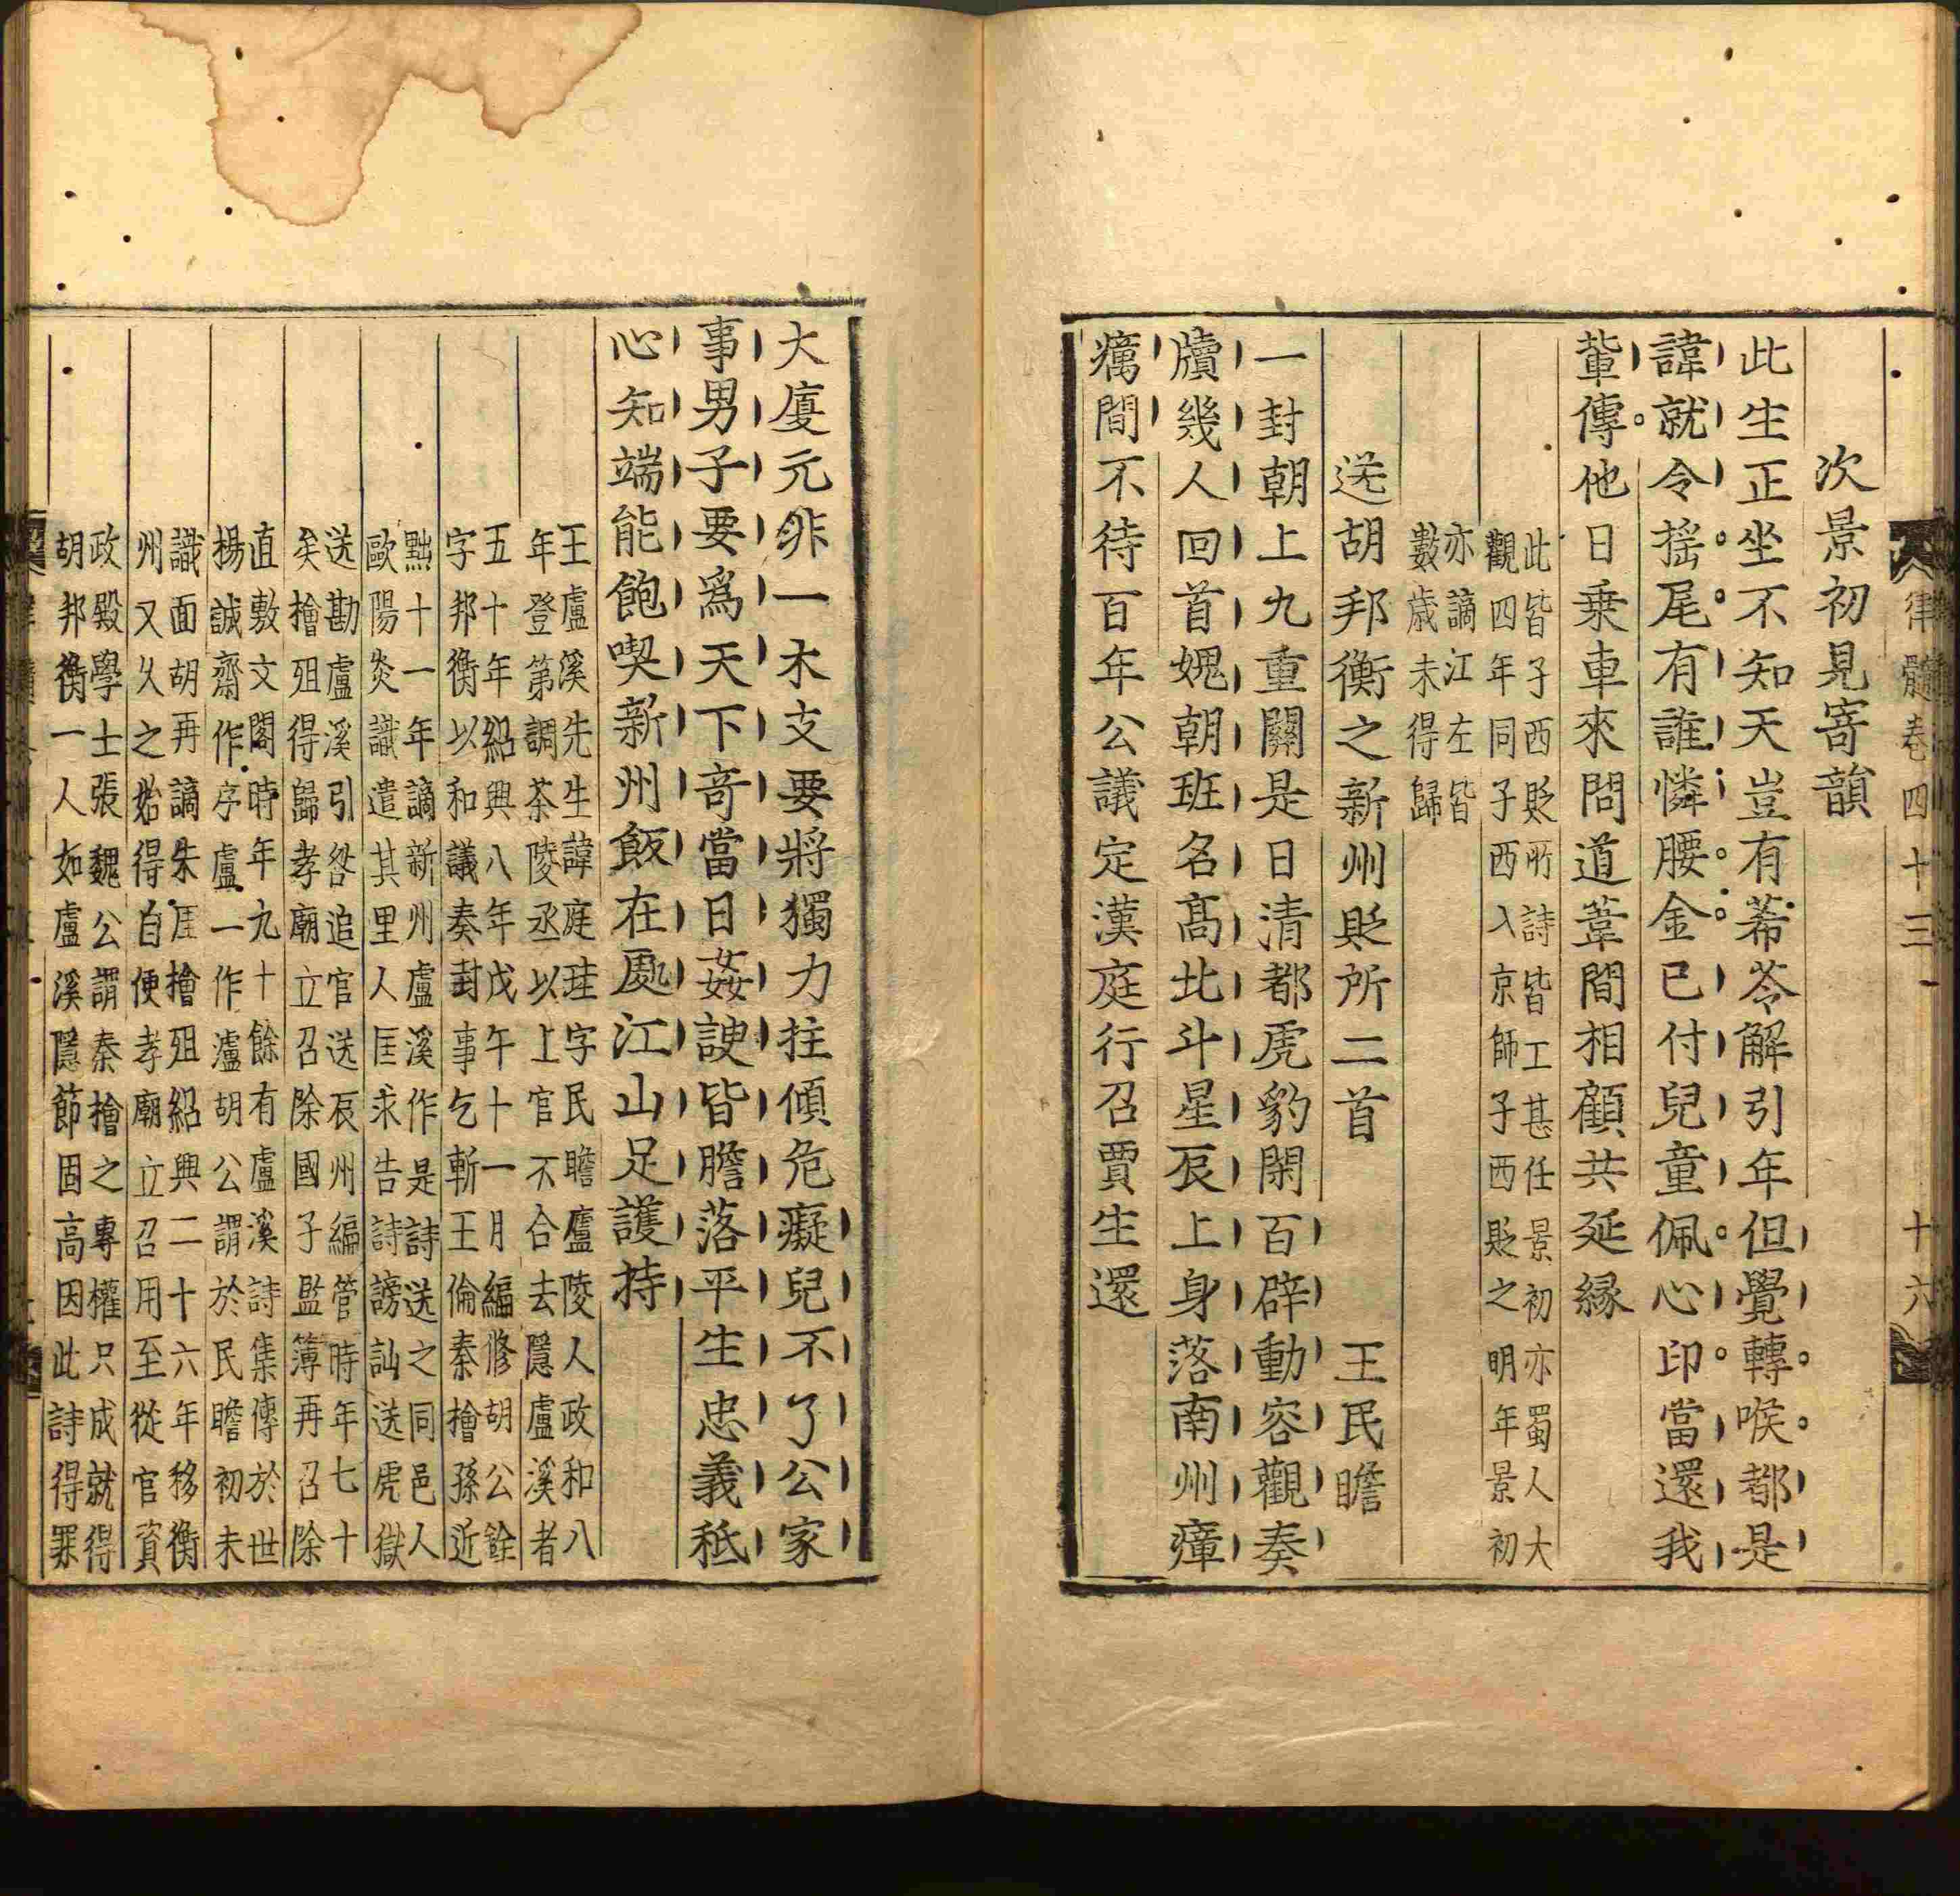 律髓卷四十三
十六
次景初見寄韻
此生正坐不知天豈有莃苓解引年但覺轉喉都是
諱就令揺尾有誰憐腰金已付兒童佩心印當還我
輩傳他日乗車來問道葦間相顧共延縁
此皆子西貶所詩皆工甚任景初亦蜀人大
觀四年同子西入京師子西貶之明年景初
亦謫江左皆
數歳未得歸
送胡邦衡之新州貶所二首
王民瞻
一封朝上九重關是日清都虎豹閑百辟動容觀奏
牘幾人回首媿朝班名髙北斗星辰上身落南州瘴
癘間不待百年公議定漢庭行召賈生還
大廈元非一木支要將獨力拄傾危癡兒不了公家
事男子要爲天下竒當日姦諛皆膽落平生忠義秪
心知端能飽喫新州飯在處江山足護持
王盧溪先生諱庭珪字民瞻廬陵人政和八
年登第調茶陵丞以上官不合去隱盧溪者
五十年紹興八年戊午十一月編修胡公銓
字邦衡以和議奏封事乞斬王倫秦檜孫近
黜十一年謫新州盧溪作是詩送之同邑人
歐陽炎識遣其里人匡求告詩謗訕送虎獄
送勘盧溪引咎追官送辰州編管時年七十
矣檜殂得歸孝廟立召除國子監簿再召除
直敷文閣時年九十餘有盧溪詩集傳於世
楊誠齋作序盧一作瀘胡公謂於民瞻初未
識面胡再謫朱崖檜殂紹興二十六年移衡
州又乆之始得自便孝廟立召用至從官資
政殿學士張魏公謂秦檜之專權只成就得
胡邦衡一人如盧溪隱節固高因此詩得罪